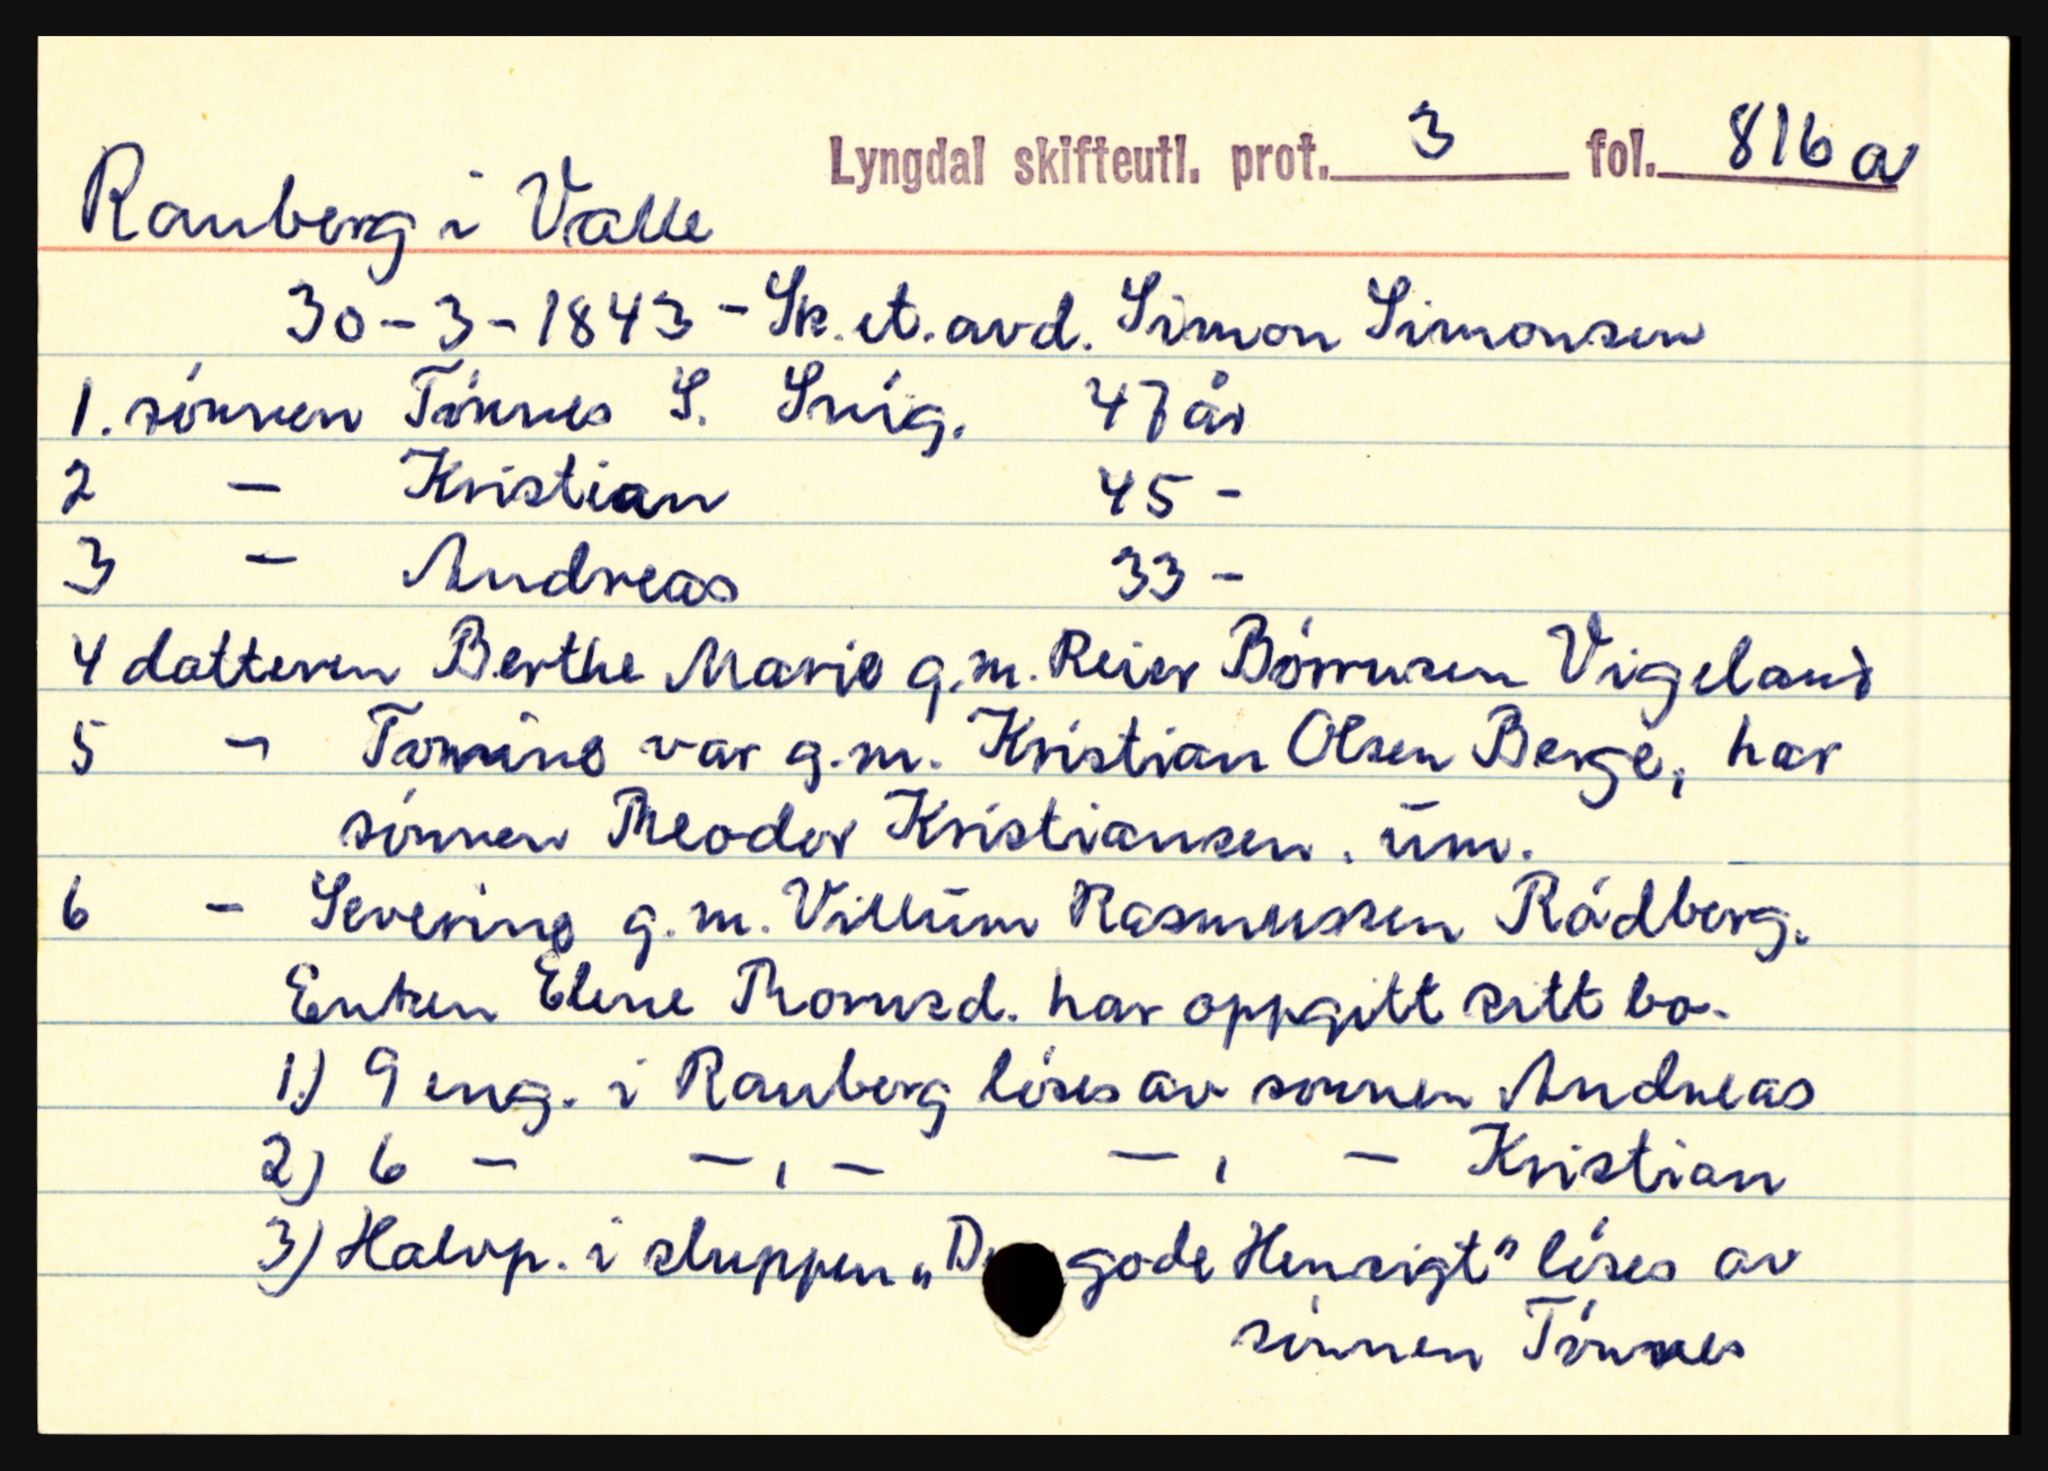 Lyngdal skifteutl. prot. 3 fol. 816a
Rauberg i Valle
30-3-1843 - Sk. et. avd. Simon Simonsen
1. sónnen Tónnes S. Sníg. 47 år
2 - Kristian 45 -
3 - Andreas 33 -
4 datteren Berthe Marie g.m. Reier Bórrusen Vigeland
5 - Tomine var g.m. Kristian Olsen Berge, har
sónnen Theodor Kristiansen. um.
6 - Severine g.m. Villum Rasmussen Rådberg.
Enken Elene Thorusd. har oppgitt sitt bo.
1.) 9 eng. i Rauberg lóses av sonnen Andreas
2) 6 - -,- -, - Kristian
3) Halvp. i sluppen „D gode Hensigt" lóses av
sónnen Tónnes